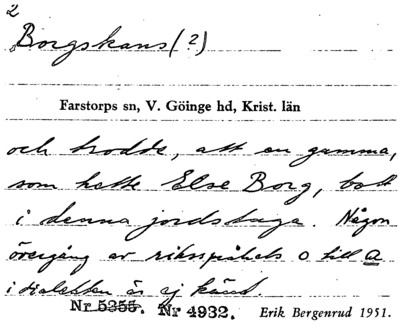 2
Borgskans (?)
Farstorps sn, V. Göinge hd, Krist. län
och trodde, att en gumma,
som hette Else Borg, bott
i denna jordstuga. Någon
övergång av riksspråkets o till a
i dialekten är ej känd.
Nr 5355. Nr 4932. Erik Bergenrud 1951.